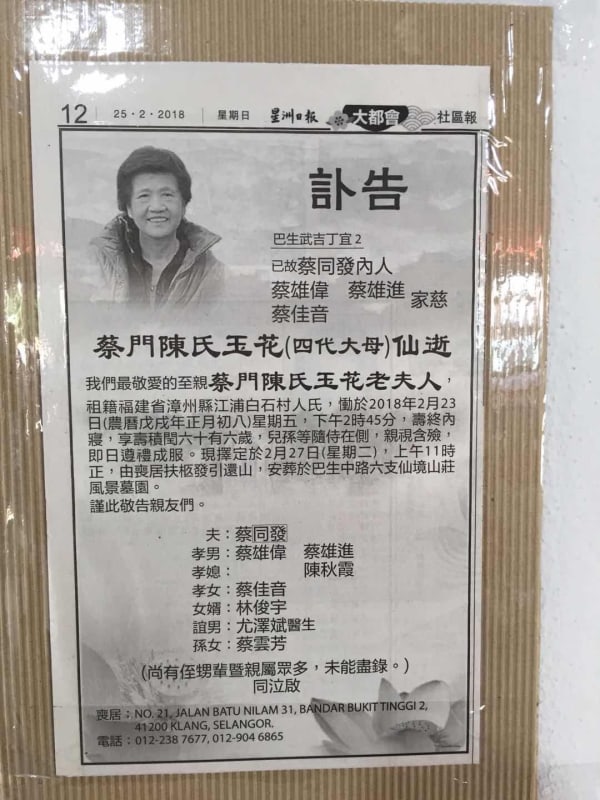 12 25·2·2018 星期日 星洲日报 大都會 社區報
訃告
巴生武吉丁宜 2
已故蔡同發內人
蔡雄偉 蔡雄進 家慈
蔡佳音
蔡門陳氏玉花(四代大母)仙逝
我們最敬愛的至親蔡門陳氏玉花老夫人，
祖籍福建省漳州縣江浦白石村人氏，慟於2018年2月23
日(農曆戊戌年正月初八)星期五，下午2時45分，壽終內
寢，享壽積閏六十有六歲，兒孫等隨侍在側，親視含殮，
即日遵禮成服。現擇定於2月27日(星期二)，上午11時
正，由喪居扶柩發引還山，安葬於巴生中路六支仙境山莊
風景墓園。
謹此敬告親友們。
夫：蔡同發
孝男：蔡雄偉 蔡雄進
孝媳： 陳秋霞
孝女：蔡佳音
女婿：林俊宇
誼男：尤澤斌醫生
孫女：蔡雲芳
(尚有侄甥輩暨親屬眾多，未能盡錄。)
同泣啟
喪居：NO. 21, JALAN BATU NILAM 31, BANDAR BUKIT TINGGI 2,
41200 KLANG, SELANGOR.
電話：012-238 7677, 012-904 6865